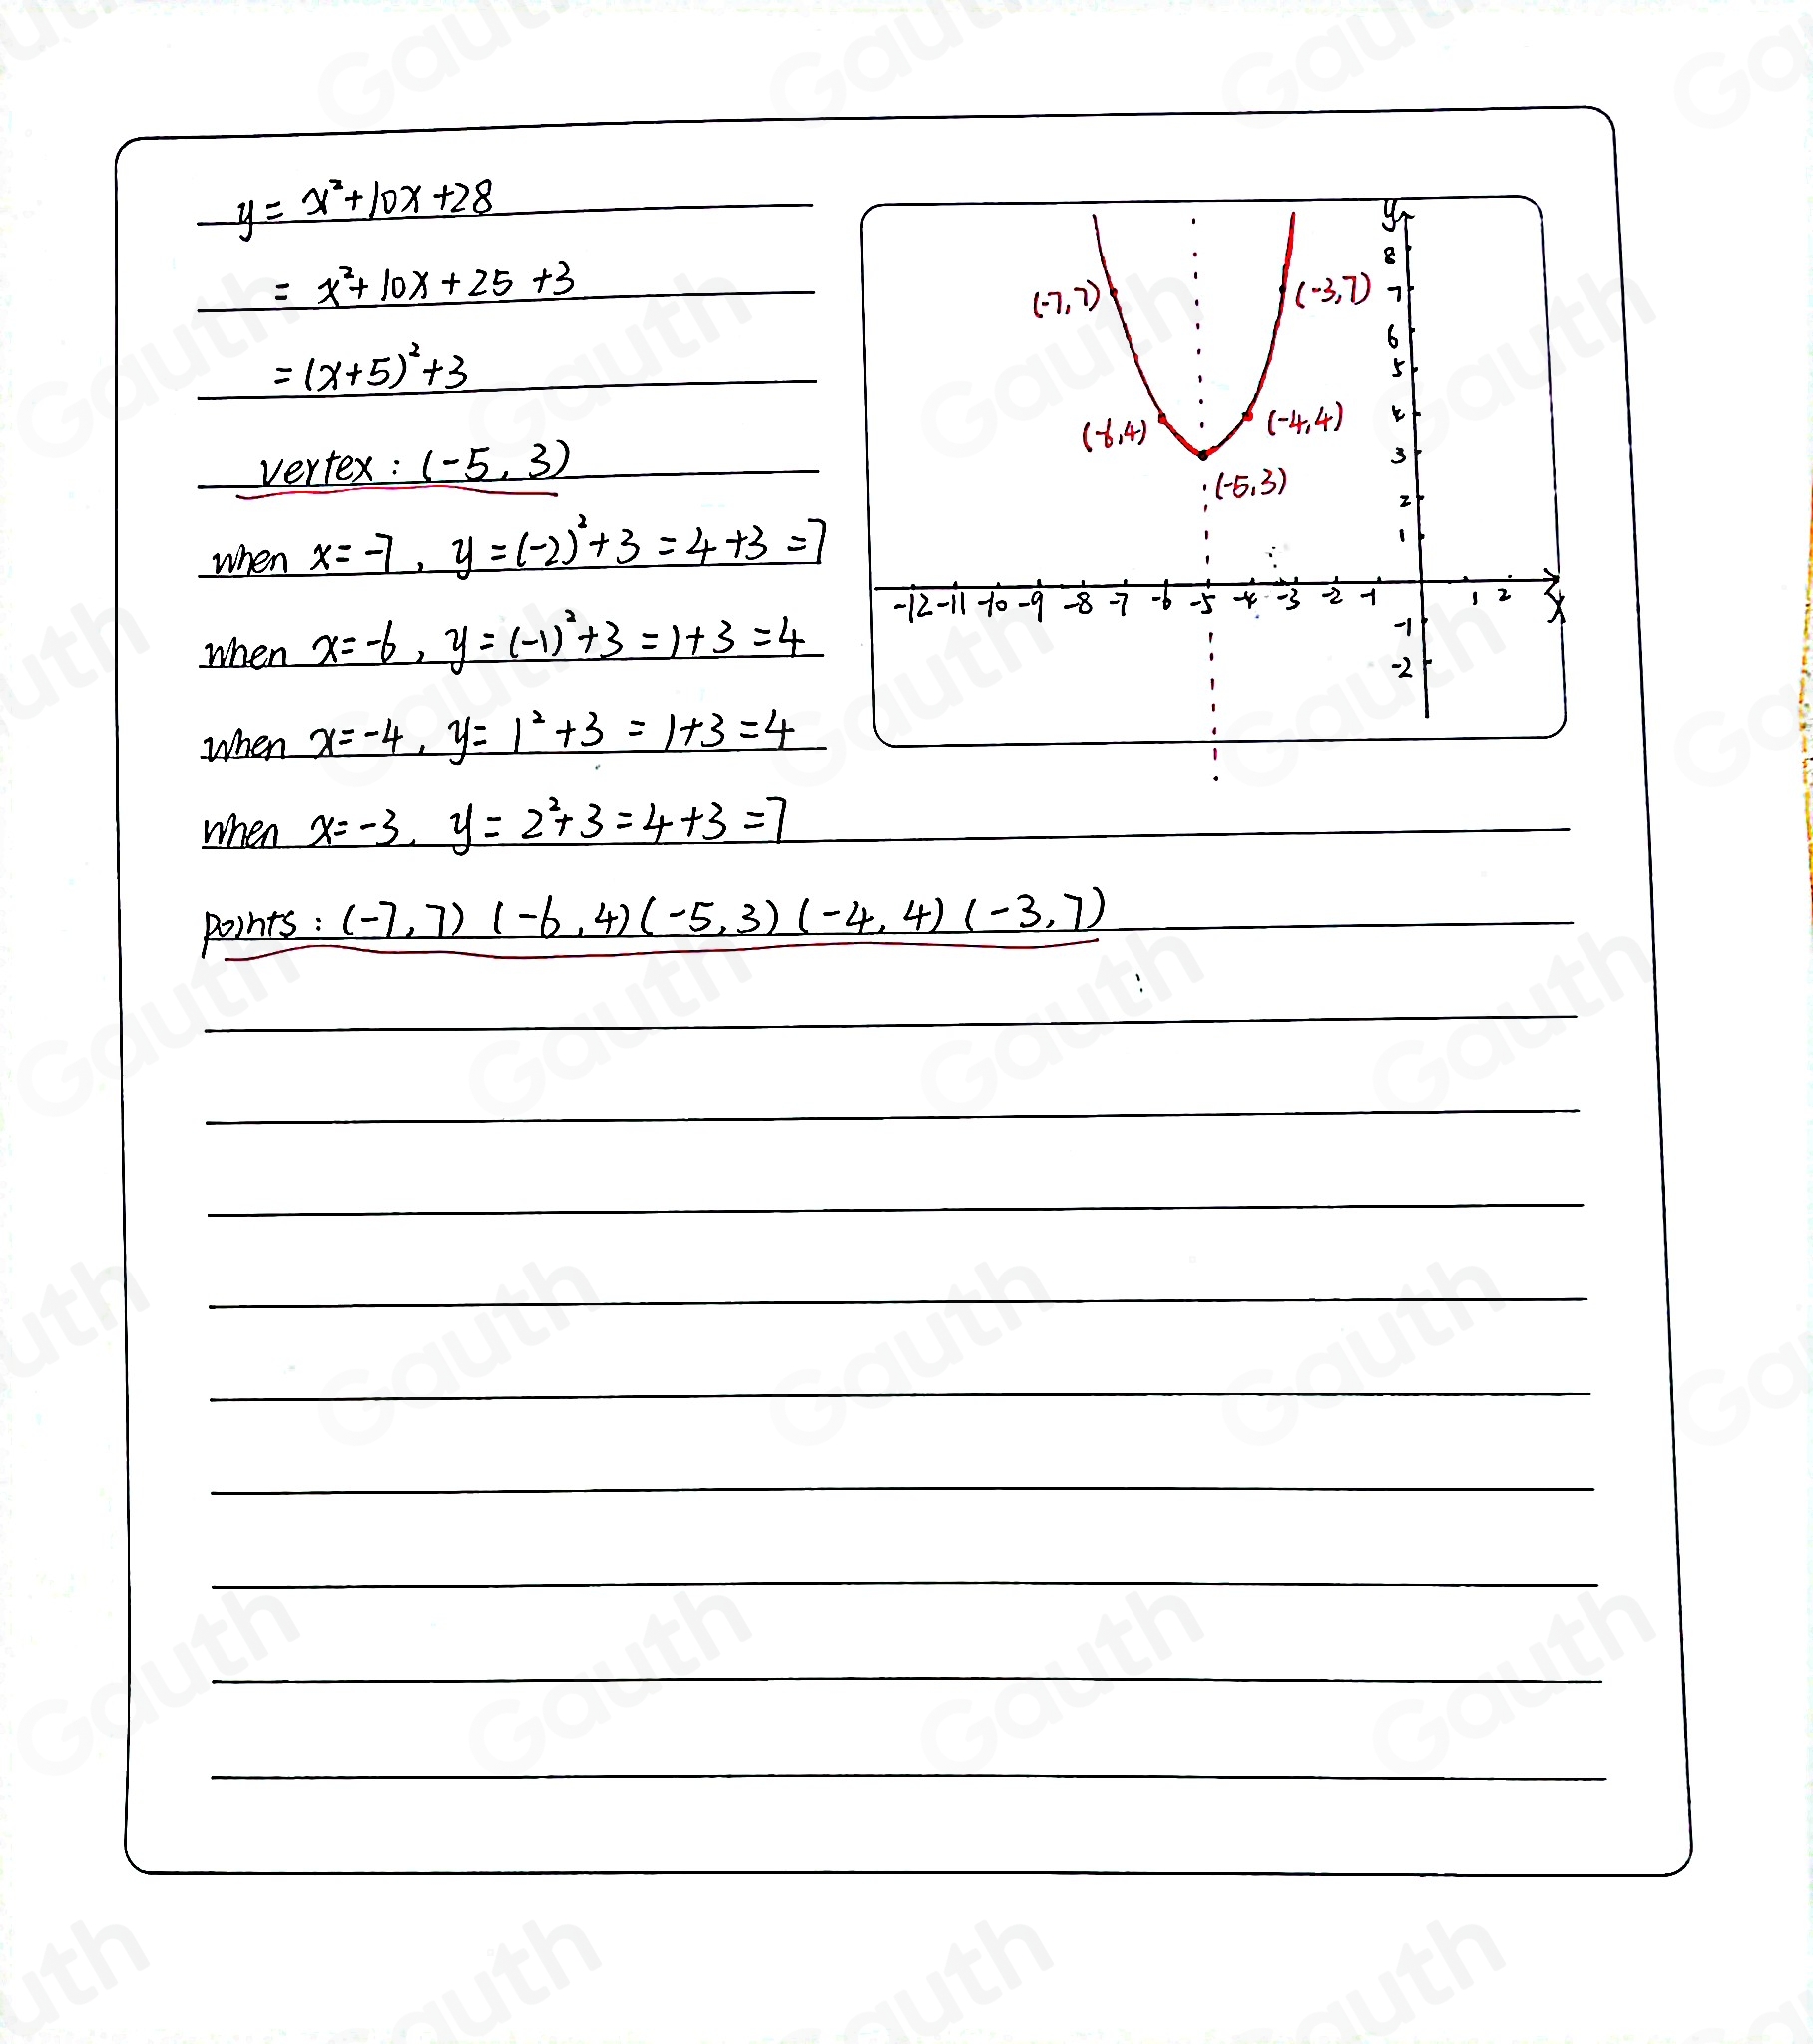 y = x²+10x+28
= x²+10x+25+3
=(x+5)²+3
vertex: (-5, 3)
when x=-7, y=(-2)²+3=4+3=7
when x=-6, y=(-1)²+3=1+3=4
when x=-4, y=1²+3=1+3=4
when x=-3, y=2²+3=4+3=7
points: (-7, 7) (-6, 4) (-5, 3) (-4, 4) (-3, 7)
y
8
(-7, 7) (-3, 7) 7
6
5
(-6, 4) (-4, 4) 4
3
(-5, 3)
2
1
-12 -11 -10 -9 -8 -7 -6 -5 -4 -3 -2 -1 1 2 x
-1
-2
Gauth